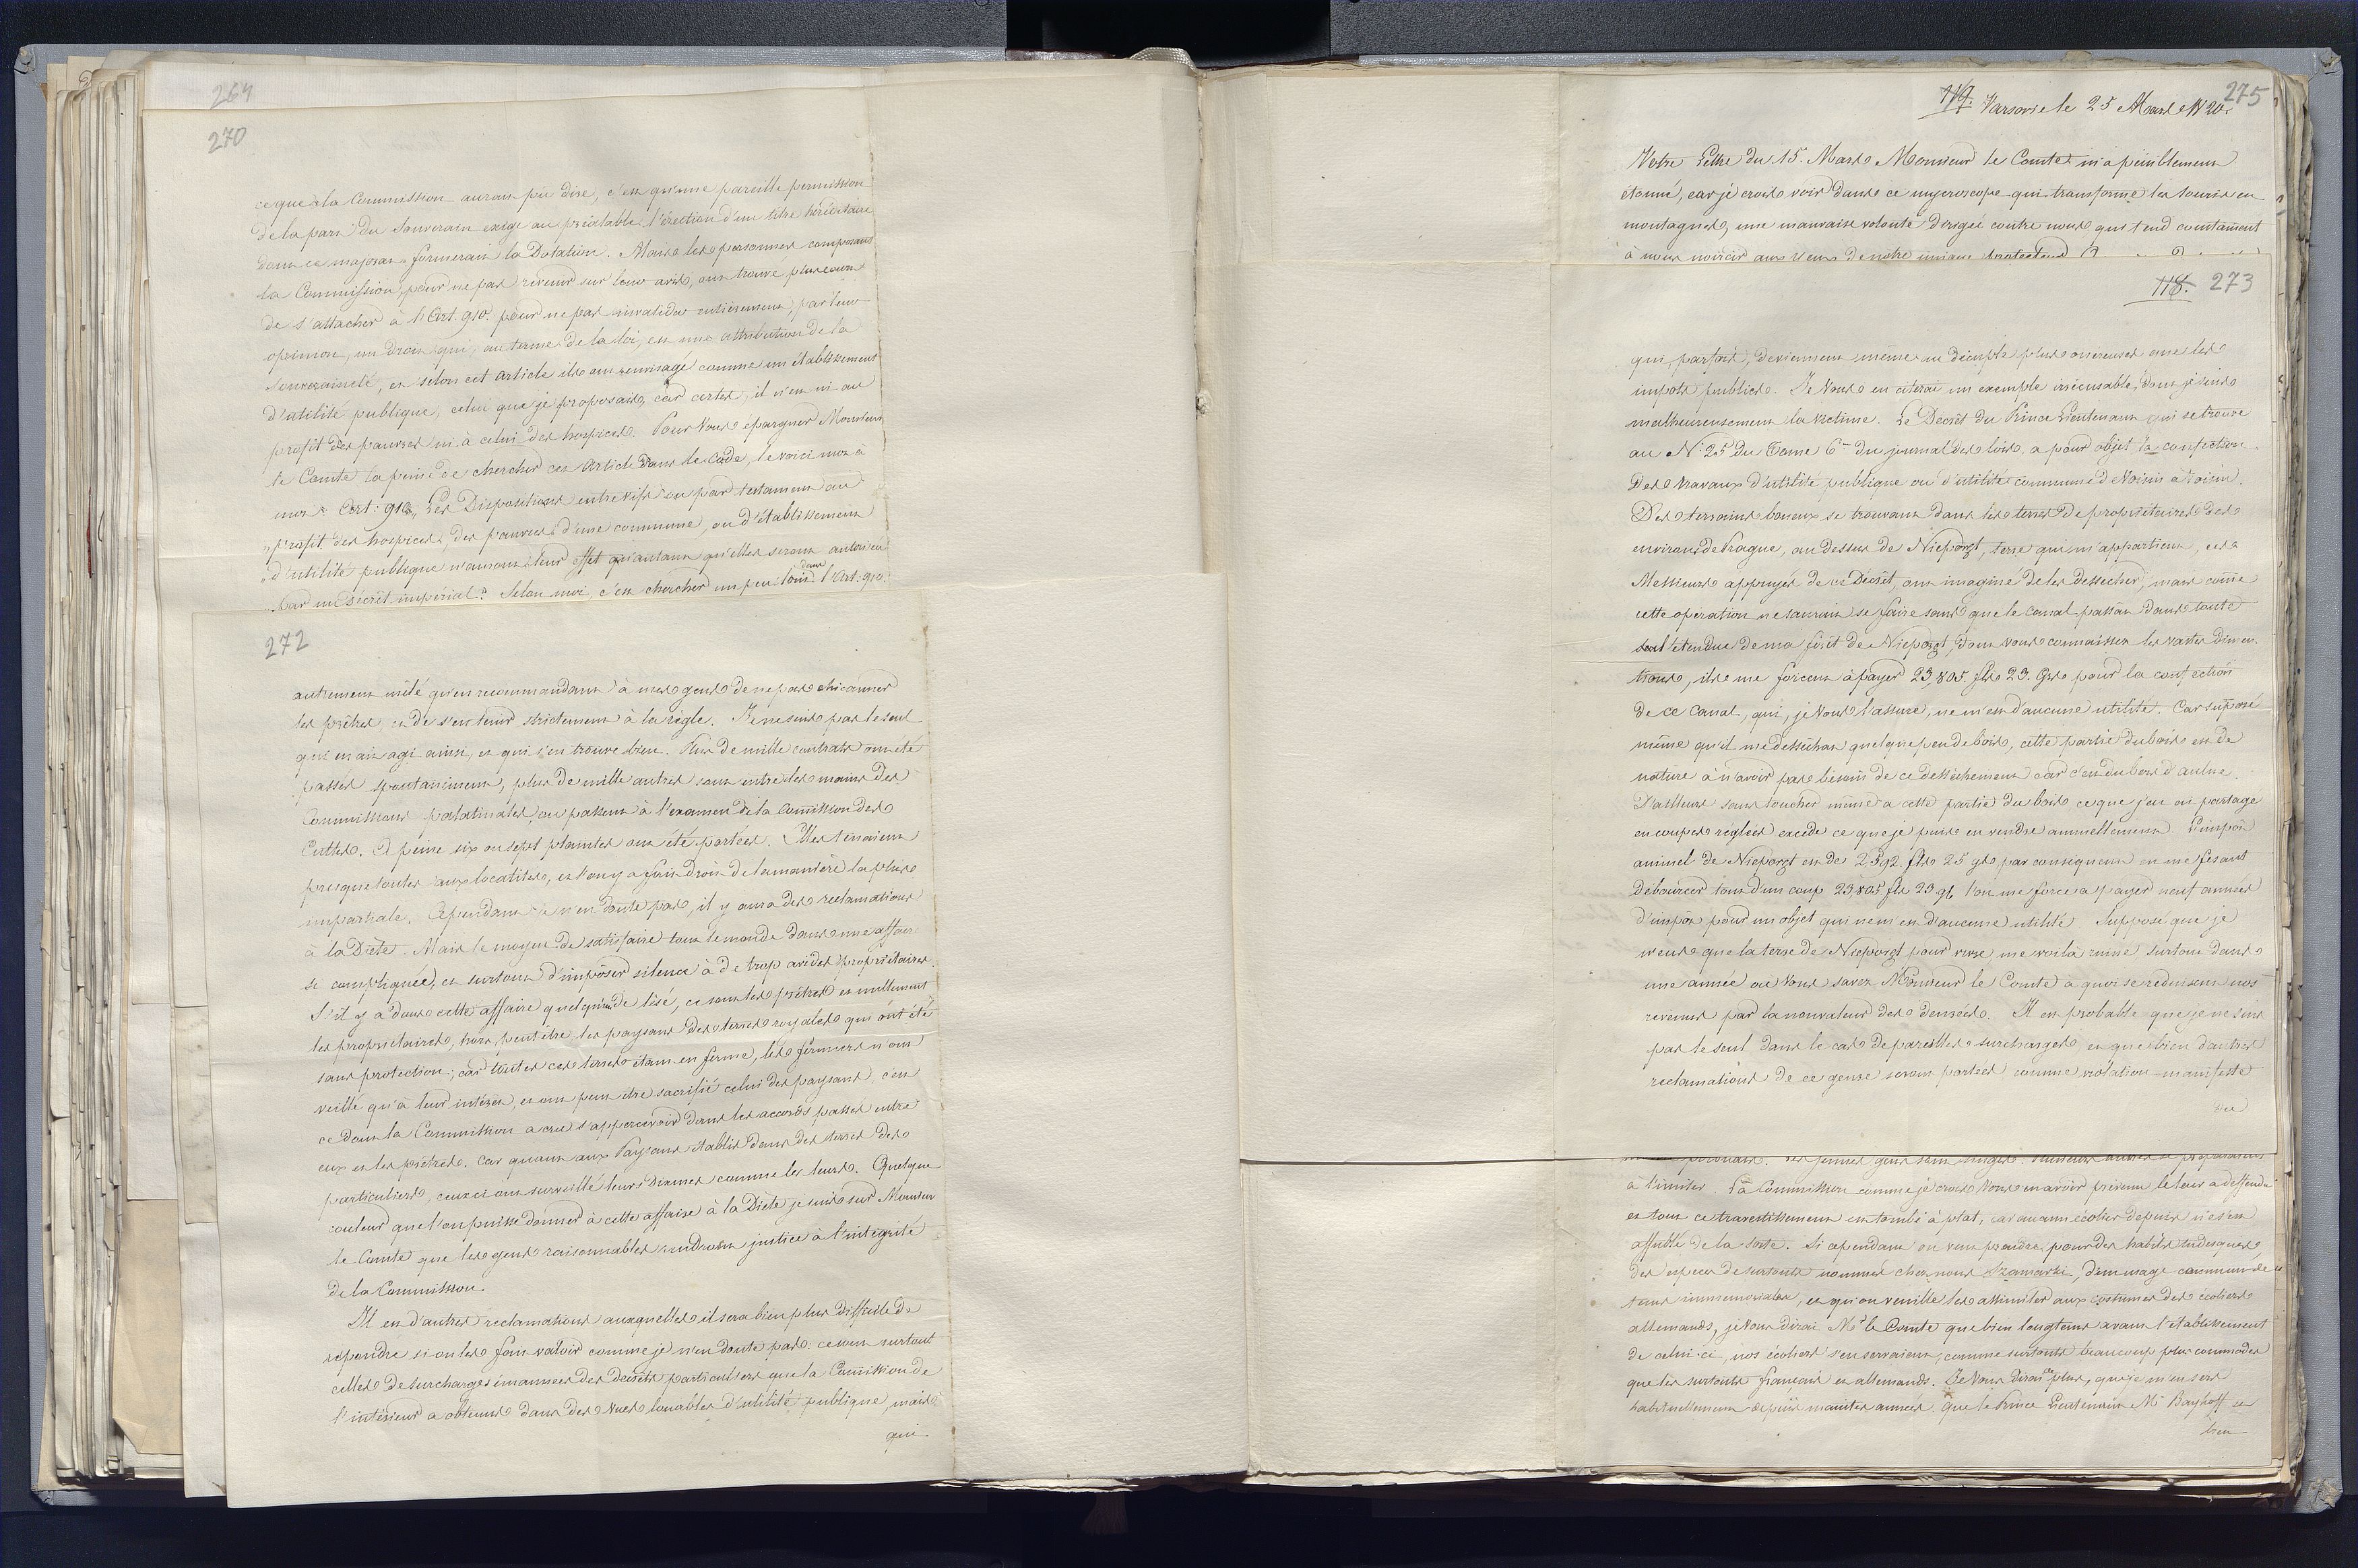 264
270
ce que la Commission aurait pu dire, c'est qu'une pareille permission
de la part du Souverain exige au préalable l'érection d'un titre héréditaire
dont ce majorat formerait la Dotation. Mais les personnes composant
la Commission, pour ne pas revenir sur leur avis, ont trouvé plus court
de s'attacher à l'Art. 910. pour ne pas invalider entièrement, par leur
opinion, un droit qui, au terme de la loi, est une attribution de la
Souveraineté, et selon cet article ils ont envisagé comme un établissement
d'utilité publique, celui que je proposais, car certes, il n'est ni au
profit des pauvres ni à celui des hospices. Pour Vous épargner Monsieur
le Comte la peine de chercher cet Article dans le Code, le voici mot à
mot: Art: 910, Les Dispositions entre vifs ou par testament au
„profit des hospices, des pauvres d'une commune, ou d'établissement
„d'utilité publique n'auront leur effet qu'autant qu'elles seront autorisées
„par un Décrêt impérial." Selon moi, c'est chercher un peu loin dans l'Art: 910.
272
autrement mêlé qu'en recommandant à mes gens de ne pas chicanner
les prêtres et de s'en tenir strictement à la règle. Je ne suis pas le seul
qui en ait agi ainsi, et qui s'en trouve bien. Plus de mille contrats ont été
passés spontanément, plus de mille autres sont entre les mains des
Commissions palatinales, ou passent à l'examen de la Com̅ission des
Cultes. A peine six ou sept plaintes ont été portées. Elles tenaient
presque toutes aux localités, et l'on y a fait droit de la manière la plus
impartiale. Cependant je n'en doute pas, il y aura des reclamations
à la Diète. Mais le moyen de satisfaire tout le monde dans une affaire
si compliquée, et surtout d'imposer silence à de trop avides propriétaires.
S'il y a dans cette affaire quelqu'un de lésé, ce sont les prêtres et nullement
les propriétaires, hors, peut être les paysans des terres royales qui ont été
sans protection; car toutes ces terres étant en ferme, les fermiers n'ont
veillé qu'à leur intérêt, et ont peut être sacrifié celui des paysans, c'est
ce dont la Commission a cru s'appercevoir dans les accords passés entre
eux et les prêtres. Car quant aux Paysans établis dans des terres des
particuliers, ceux ci ont surveillé leurs Dixmes comme les leurs. Quelque
couleur que l'on puisse donner à cette affaire à la Diète je suis sur Monsieur
le Comte que les gens raisonnables rendront justice à l'integrité
de la Commission.
Il est d'autres réclamations auxquelles il sera bien plus difficile de
repondre si on les fait valoir comme je n'en doute pas: ce sont surtout
celles de surcharges émannées des decrêts particuliers que la Com̅ission de
l'intérieur a obtenus dans des vues louables d'utilité publique, mais
qui
119. Varsovie le 25 Mars 1820. 275
Votre Lettre du 15. Mars Monsieur le Comte m'a péniblement
étonné, car je crois voir dans ce mycroscope qui transforme les souris en
montagnes, une mauvaise volonté dirigée contre nous qui tend constam̅ent
à nous noircir aux yeux de notre unique protecteur
118. 273
qui, parfois, deviennent même au décuple plus onéreuses que les
impots publics. Je Vous en citerai un exemple irrécusable, dont je suis
malheureusement la victime. Le Decrêt du Prince Lieutenant qui se trouve
au N: 25 du Tome 6me du journal des lois, a pour objet la confection
des travaux d'utilité publique ou d'utilité commune de Voisin à Voisin.
Des terrains boueux se trouvant dans les terres de propriétaires des
environs de Prague, au dessus de Nieporęt, terre qui m'appartient, ces
Messieurs appuyés de ce Décrêt, ont imaginé de les dessecher, mais com̅e
cette operation ne saurait se faire sans que le Canal passat dans toute
l'étendue de ma forêt de Nieporęt, dont vous connaissez les vastes dimen-
tions, ils me forcent à payer 23,805. fls 23. Gs pour la confection
de ce Canal, qui, je Vous l'assure, ne m'est d'aucune utilité. Car supposé
même qu'il me desséchat quelque peu de bois, cette partie du bois est de
nature à n'avoir pas besoin de ce dessèchement car c'est du bois d'aulne.
D'ailleurs sans toucher même à cette partie du bois ce que j'en ai partagé
en coupes réglées excède ce que je puis en vendre annuellement. L'impôt
annuel de Nieporęt est de 2,592 fls 25 gs par conséquent en me fesant
débourcer tout d'un coup 23,805 fls 23 gs l'on me force à payer neuf années
d'impôt pour un objet qui ne m'est d'aucune utilité. Supposé que je
n'eus que la terre de Nieporęt pour vivre, me voilà ruiné surtout dans
une année où Vous savez Monsieur le Comte à quoi se reduisent nos
revenus par la nonvaleur des denrées. Il est probable que je ne suis
pas le seul dans le cas de pareilles surcharges et que bien d'autres
reclamations de ce genre seront portées comme violation manifeste
du
à l'imiter. La Commission comme je crois Vous en avoir prévenu le leur a deffendu
et tout ce travestissement est tombé à plat, car aucun écolier depuis n'est
affublé de la sorte. Si cependant on veut prendre pour des habits tudesques,
des especes de surtouts nommés chez nous Szamarki, d'un usage commun de
tems immemoriales, et qu'on veuille les assimiler aux costumes des écoliers
allemands, je Vous dirai Mr le Comte que bien longtems avant l'établissement
de celui-ci, nos écoliers s'en servaient, comme surtouts beaucoup plus commodes
que les surtouts français et allemands. Je Vous dirai de plus, que je m'en sers
habituellement depuis maintes années, que le Prince Lieutenant Mr Baykoff et
bien